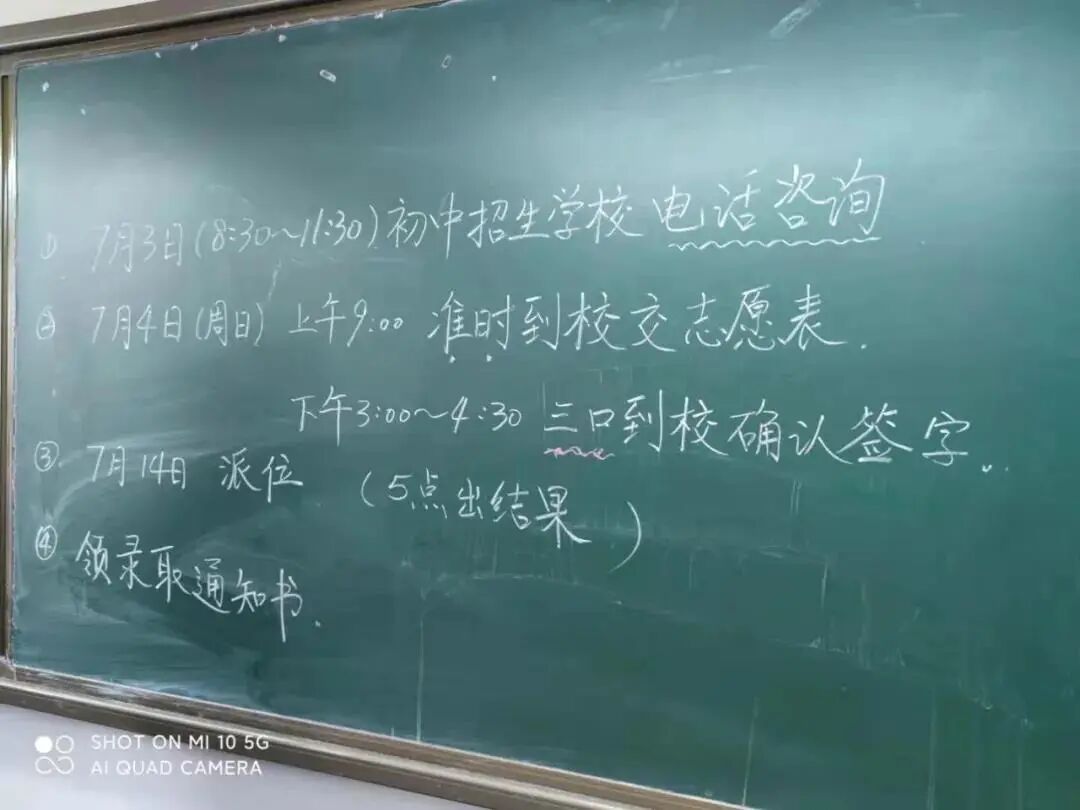 ① 7月3日(8:30~11:30)初中招生学校 电话咨询
② 7月4日(周日) 上午9:00 准时到校交志愿表.
下午3:00~4:30 三口到校确认签字...
③ 7月14日 派位 (5点出结果)
④ 领录取通知书.
SHOT ON MI 10 5G
AI QUAD CAMERA